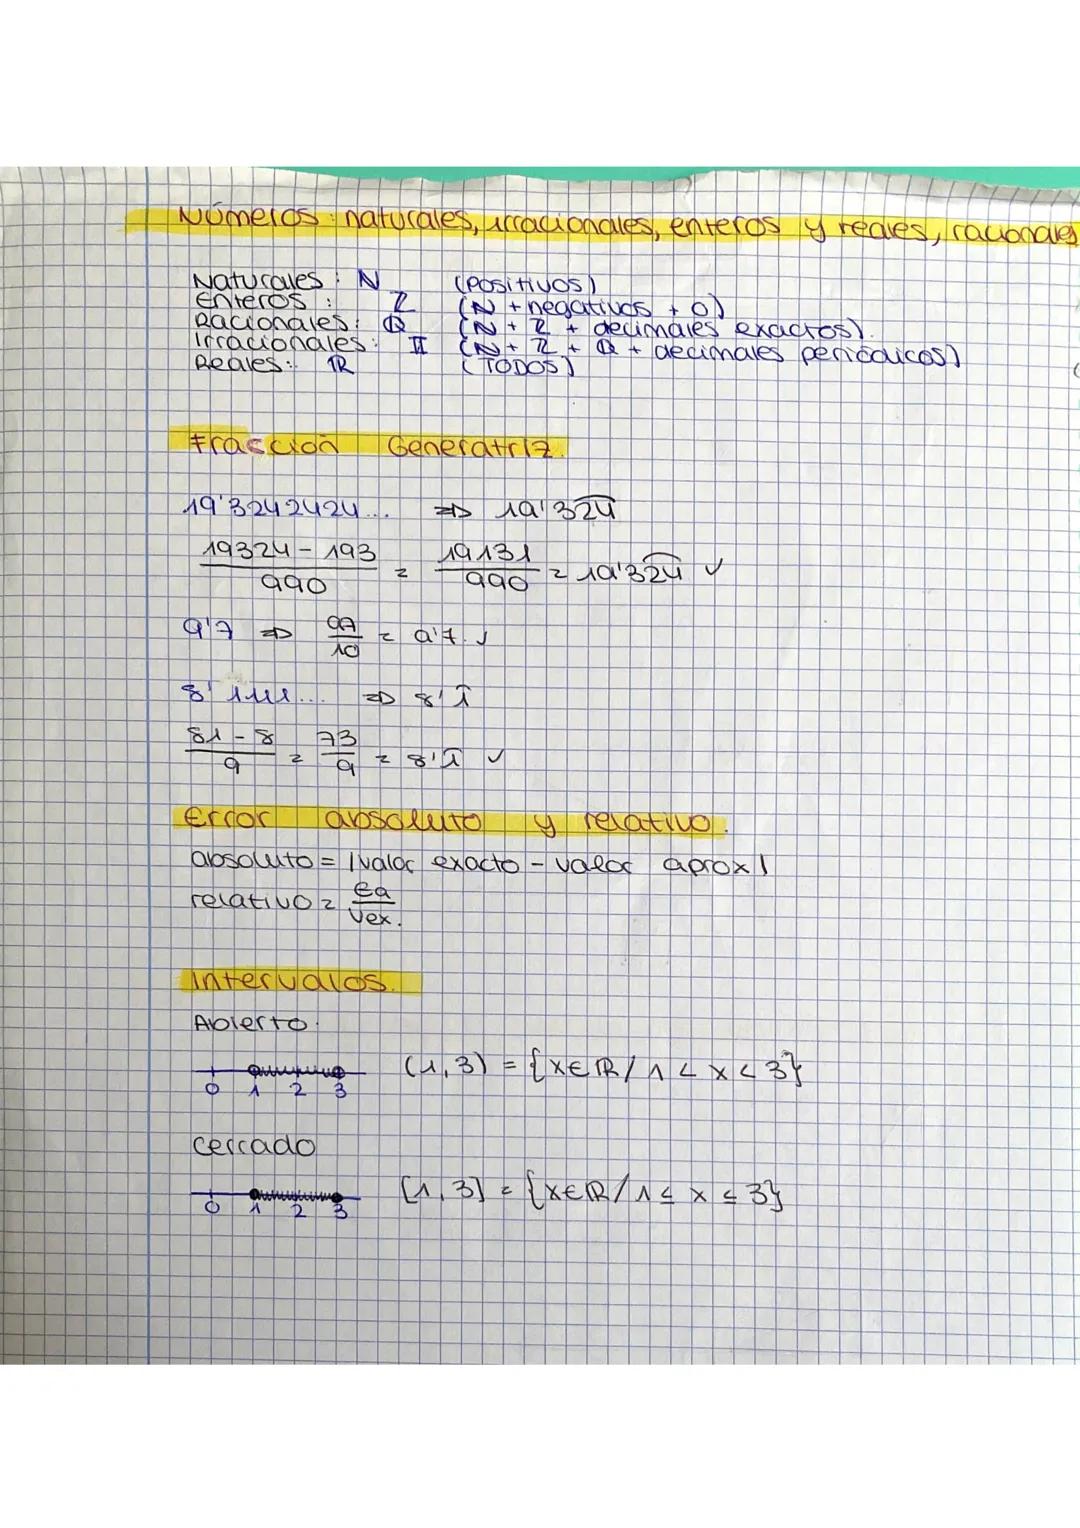 Números: naturales, irracionales, enteros y reales, racionales
Naturales: N (positivos)
Enteros: Z (N + negativos + 0)
Racionales: Q (N + Z + decimales exactos).
Irracionales: II (N + Z + Q + decimales periódicos)
Reales: R (TODOS)
Fracción Generatriz.
19'3242424... ⇒ 19'3\overline{24}
\frac{19324 - 193}{990} = \frac{19131}{990} = 19'3\overline{24} ✓
9'7 ⇒ \frac{97}{10} = 9'7. ✓
8'1111... ⇒ 8'\overline{1}
\frac{81 - 8}{9} = \frac{73}{9} = 8'\overline{1} ✓
Error absoluto y relativo.
absoluto = |valor exacto - valor aprox|
relativo = \frac{Ea}{Vex.}
Intervalos.
Abierto.
(1, 3) = {x∈R / 1 < x < 3}
0 1 2 3
Cerrado
[1, 3] = {x∈R / 1 ≤ x ≤ 3}
0 1 2 3